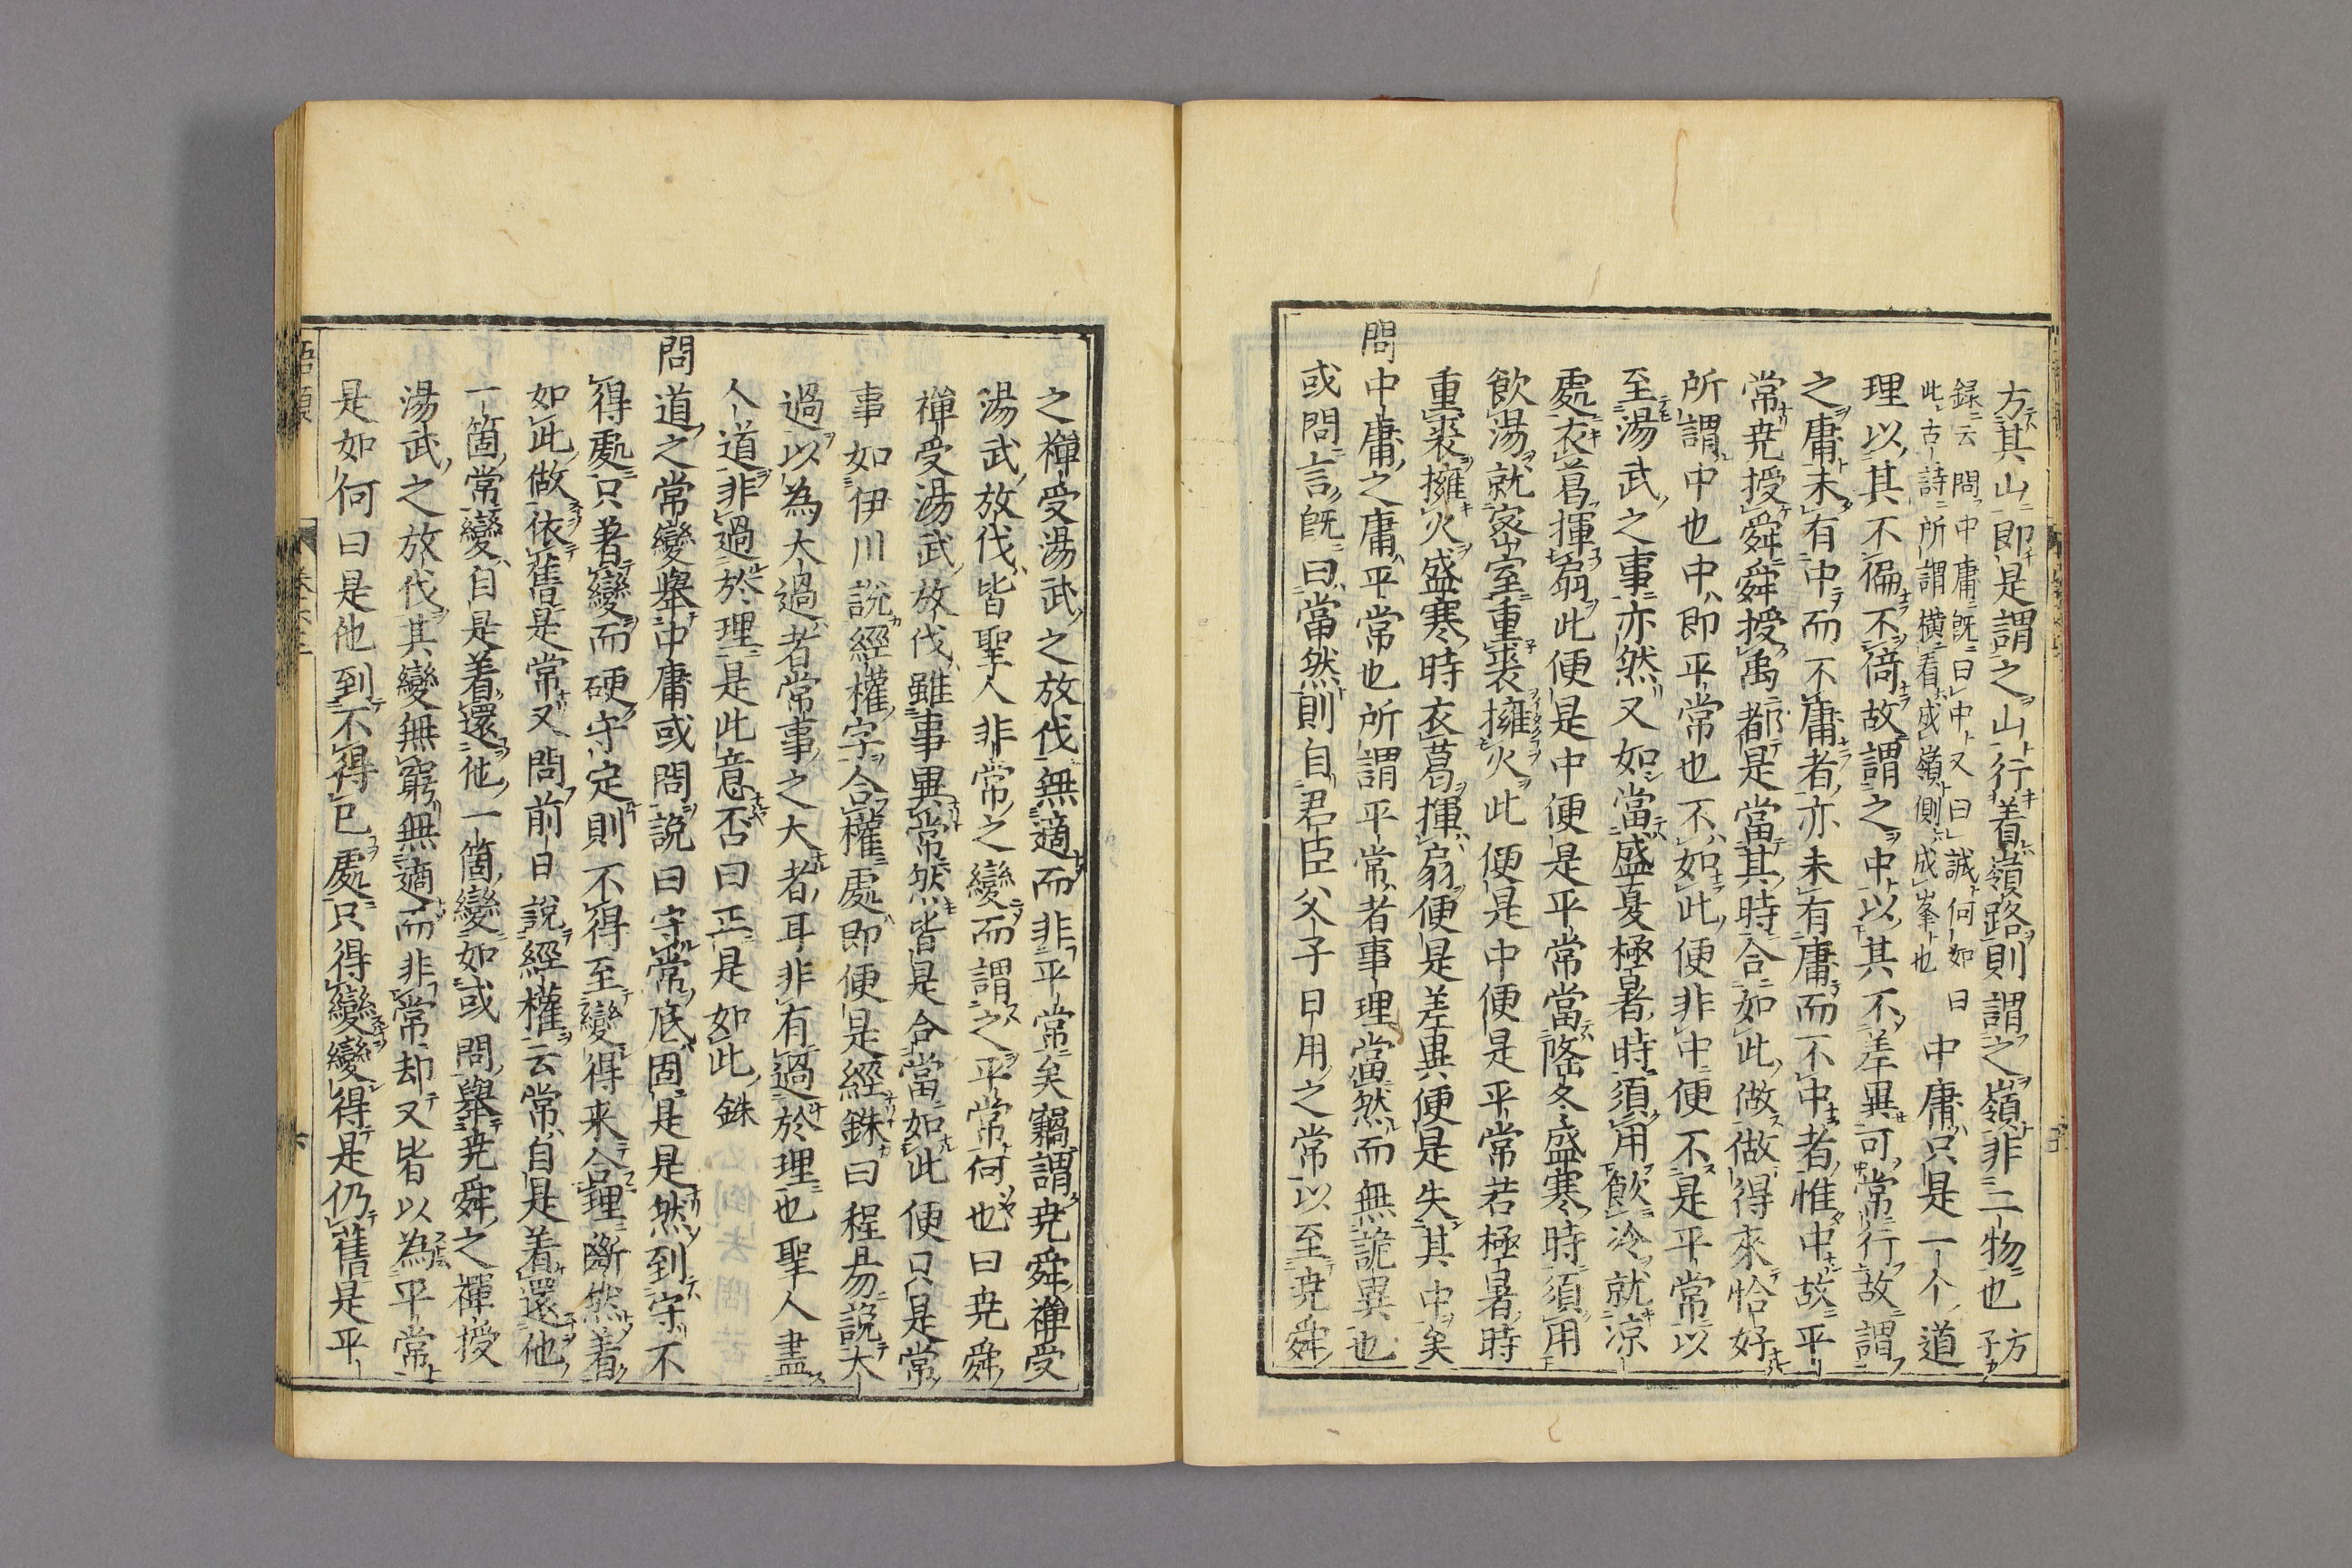 方其山即是謂之山行着嶺路則謂之嶺非二物也方子
録云問中庸既曰中又曰誠何如曰
此古詩所謂横看成嶺側成峯也
中庸只是一个道
理以其不偏不倚故謂之中以其不差異可常行故謂
之庸未有中而不庸者亦未有庸而不中者惟中故平
常尭授舜舜授禹都是當其時合如此做做得來恰好
所謂中也中即平常也不如此便非中便不是平常以
至湯武之事亦然又如當盛夏極暑時須用飲冷就凉
處衣葛揮扇此便是中便是平常當隆冬盛寒時須用
飲湯就密室重裘擁火此便是中便是平常若極暑時
重裘擁火盛寒時衣葛揮扇便是差異便是失其中矣
問中庸之庸平常也所謂平常者事理當然而無詭異也
或問言既曰當然則自君臣父子日用之常以至尭舜
之禅受湯武之放伐無適而非平常矣竊謂尭舜禅受
湯武放伐皆聖人非常之變而謂之平常何也曰尭舜
禅受湯武放伐雖事異常然皆是合當如此便只是常
事如伊川說經權字合權處即便是經銖曰程易說大
過以為大過者常事之大者耳非有過於理也聖人盡
人道非過於理是此意否曰正是如此銖
問道之常變舉中庸或問說曰守常底固是是然到守不
得處只著變而硬守定則不得至變得来合理斷然着
如此做依舊是常又問前日說經權云常自是着還他
一箇常變自是着還他一箇變如或問舉尭舜之禪授
湯武之放伐其變無窮無適而非常却又皆以為平常
是如何曰是他到不得已處只得變變得是仍舊是平